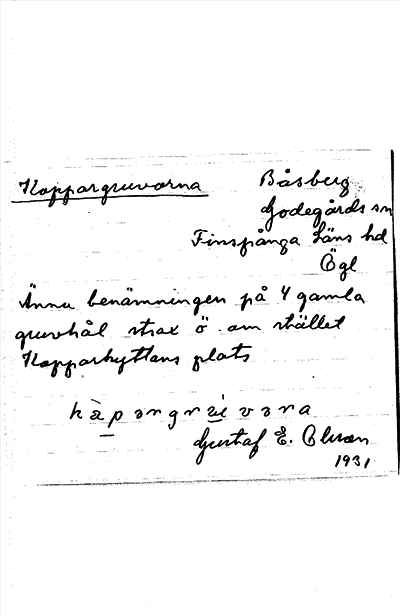 Koppargruvorna
Båsberg
Godegårds sn
Finspånga läns hd
Ögl
Ännu benämningen på 4 gamla
gruvhål strax ö om stället
Kopparhyttans plats
Gustaf E. Olsson
1931